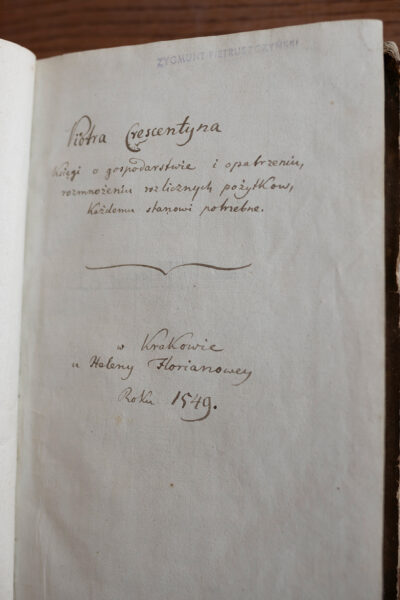 ZYGMUNT PIETRUSZCZYŃSKI
Piotra Crescentyna
Księgi o gospodarstwie i opatrzeniu,
rozmnożeniu rozlicznych pożytków,
każdemu stanowi potrzebne.
w Krakowie
u Heleny Florianowey
Roku 1549.